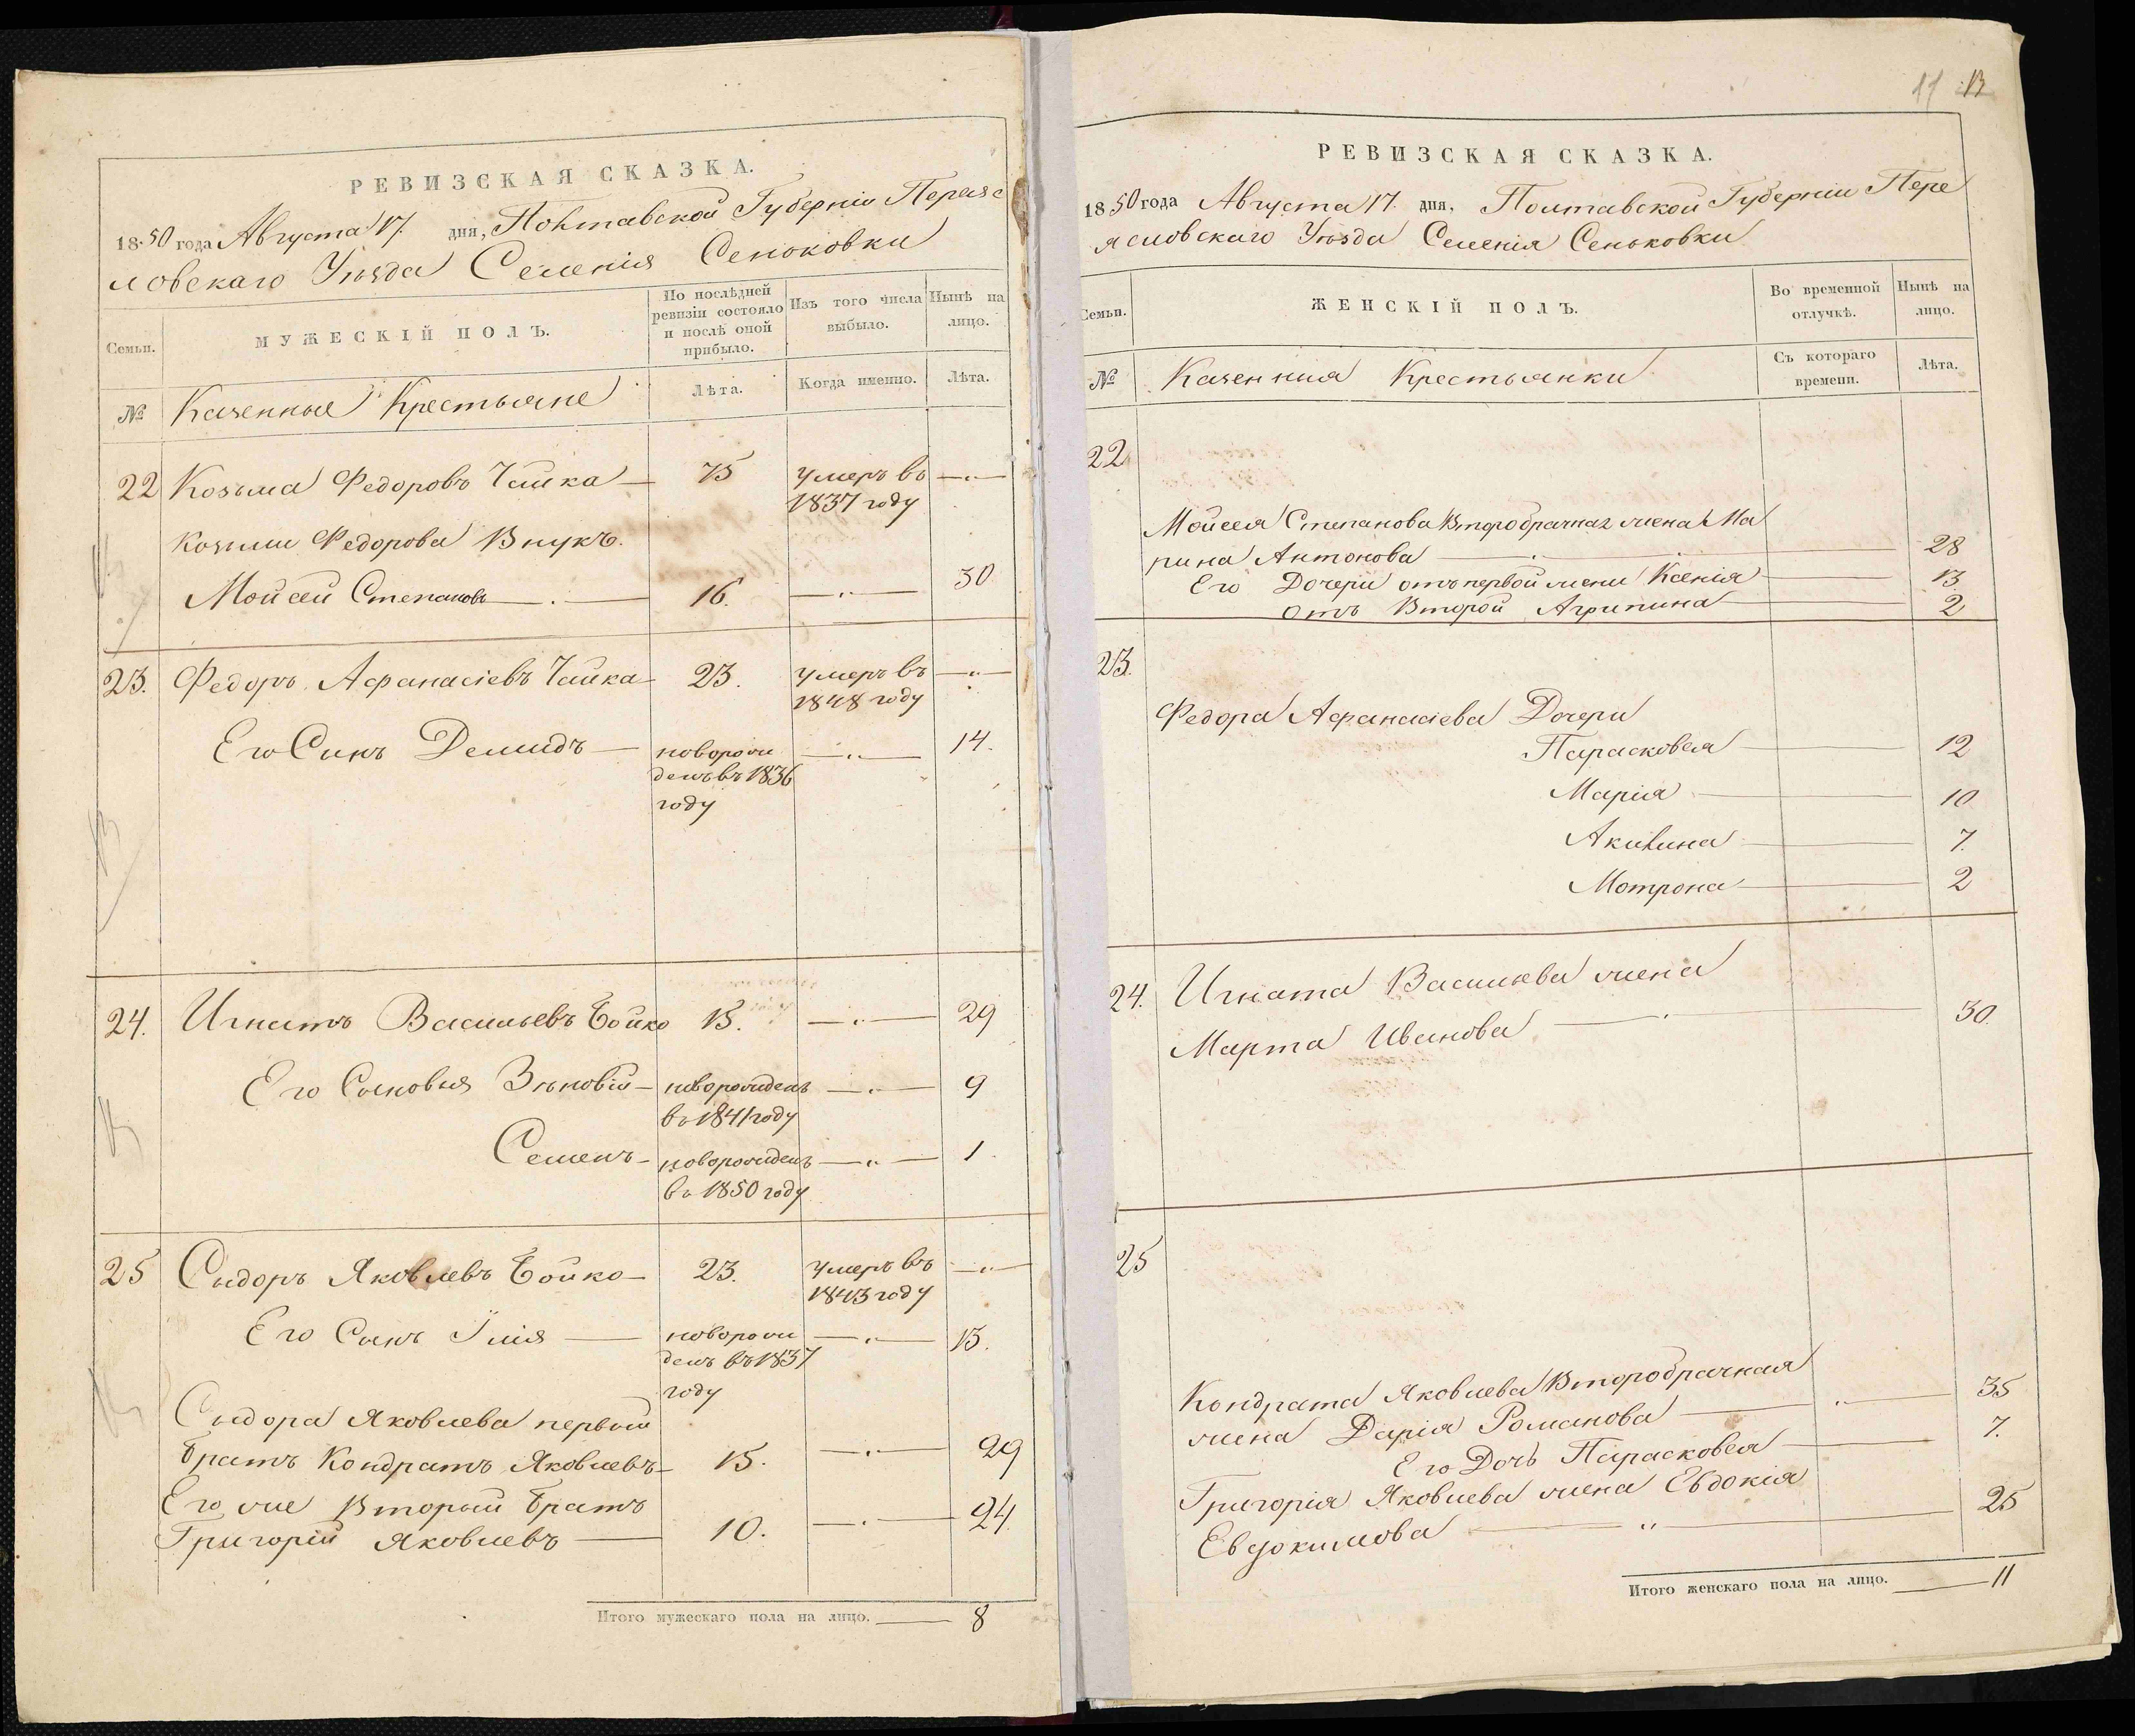 РЕВИЗСКАЯ СКАЗКА.
1850 года Августа 17. дня, Полтавской Губерніи Переяс
ловскаго Уѣзда Селенія Сеньковки
Семьи.
МУЖЕСКІЙ ПОЛЪ.
По послѣдней ревизіи состояло и послѣ оной прибыло.
Изъ того числа выбыло.
Нынѣ на лицо.
№ Казенные Крестьяне
Лѣта. Когда именно. Лѣта.
22 Козьма Федоровъ Чайка 75 умеръ въ
1837 году
Козьми Федорова Внукъ.
Мойсей Степановъ 16. 30
23. Федоръ Афанасіевъ Чайка 23. умеръ въ
1848 году
Его Синъ Демидъ новорож 14.
денъ въ 1836
году
24. Игнатъ Васильевъ Бойко 15. 29
Его Сыновья Зѣновій новорожденъ 9
въ 1841 году
Семенъ новорожденъ 1
въ 1850 году
25 Сидоръ Яковлевъ Бойко 23. умеръ въ
1843 году
Его Сынъ Илія новорож 13.
денъ въ 1837
году
Сидора Яковлева первый
братъ Кондратъ Яковлевъ 15. 29
Его же Вторый братъ
Григорій Яковлевъ 10. 24
Итого мужескаго пола на лицо. 8
11
РЕВИЗСКАЯ СКАЗКА.
1850 года Августа 17. дня, Полтавской Губерніи Пере
ясловскаго Уѣзда Селенія Сеньковки
Семьи.
ЖЕНСКІЙ ПОЛЪ.
Во временной отлучкѣ.
Нынѣ на лицо.
№ Казенния Крестьянки
Съ котораго времени. Лѣта.
22
Мойсея Степанова Второбрачная жена Ма
рина Антонова 28
Его Дочери отъ первой жени Ксенія 13
отъ Второй Агрипина 2
23.
Федора Афанасіева Дочери
Парасковея 12
Марія 10
Акилина 7.
Мотрона 2
24. Игната Васильева жена
Марта Иванова 30.
25
Кондрата Яковлева Второбрачная
жена Дарія Романова 35
Его Дочь Парасковея 7.
Григорія Яковлева жена Евдокія
Евдокимова 25
Итого женскаго пола на лицо. 11